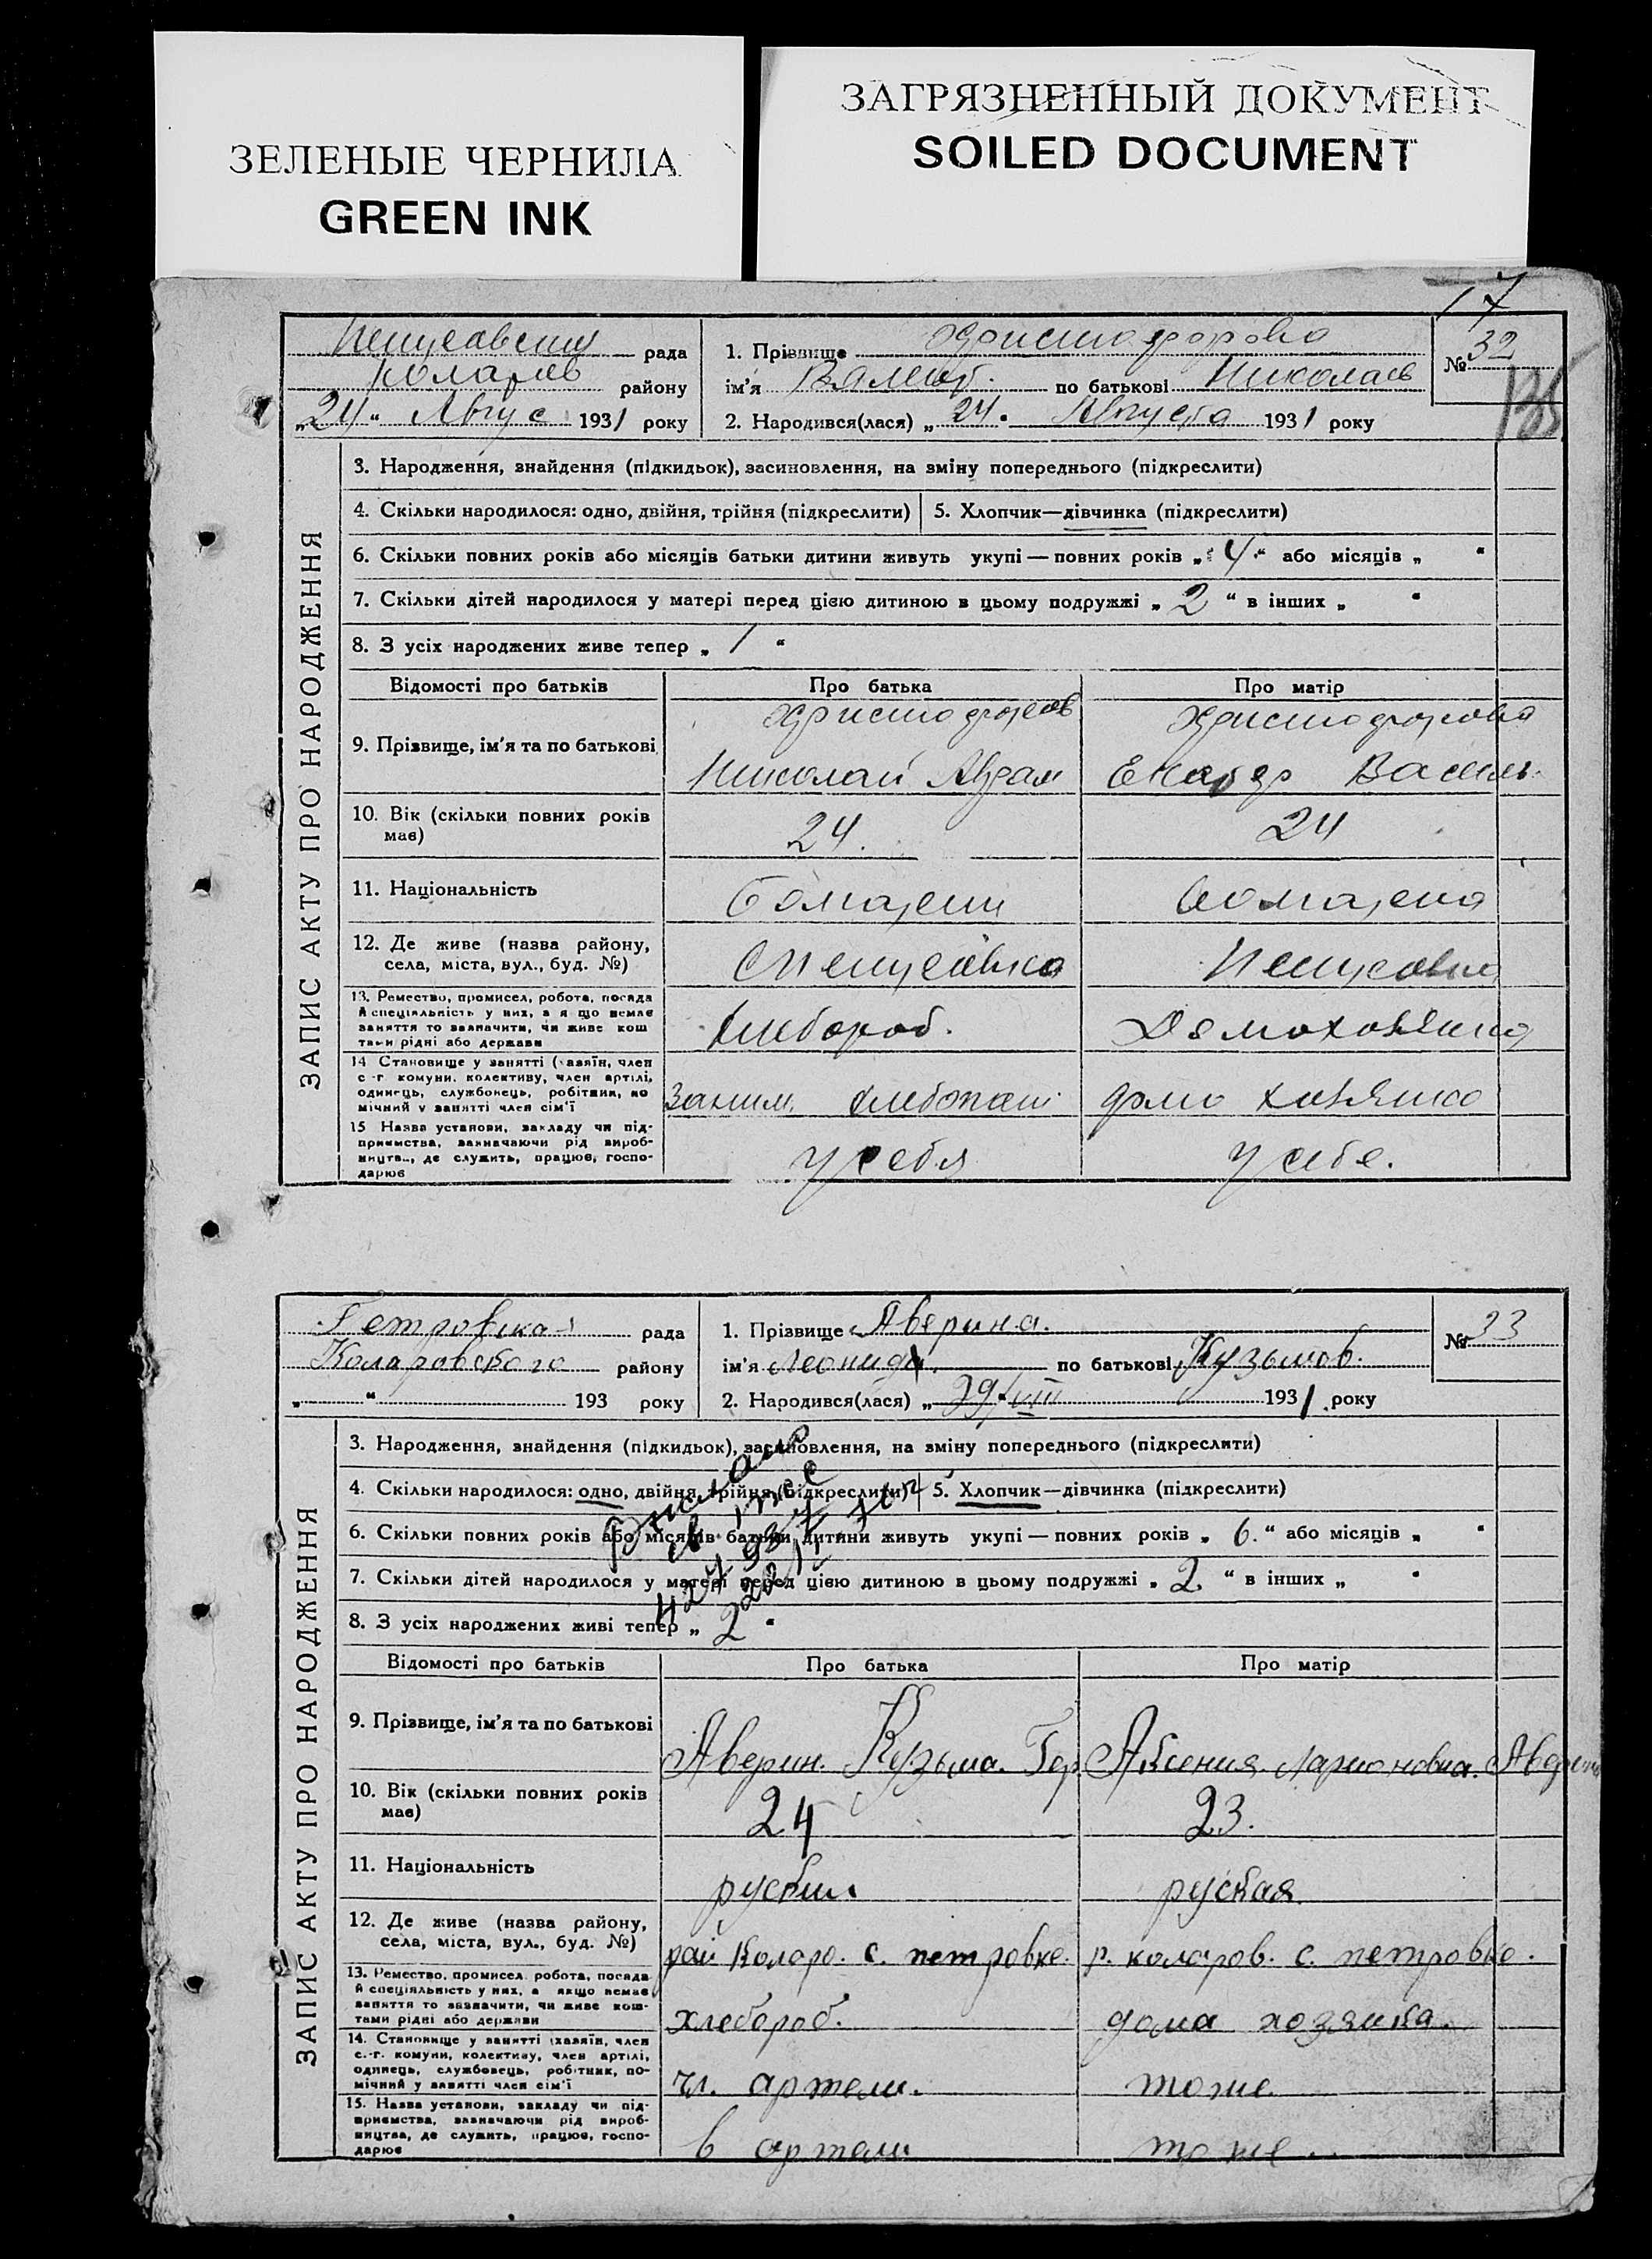 ЗЕЛЕНЫЕ ЧЕРНИЛА
GREEN INK
ЗАГРЯЗНЕННЫЙ ДОКУМЕНТ
SOILED DOCUMENT
17
рада
району
„24“ Авгус 1931 року
1. Прізвище Христофорова
ім'я по батькові Николаев
2. Народився(лася) „24“ Августа 1931 року
№ 32
ЗАПИС АКТУ ПРО НАРОДЖЕННЯ
3. Народження, знайдення (підкидьок), засиновлення, на зміну попереднього (підкреслити)
4. Скільки народилося: одно, двійня, трійня (підкреслити)
5. Хлопчик—дівчинка (підкреслити)
6. Скільки повних років або місяців батьки дитини живуть укупі — повних років „4“ або місяців „ “
7. Скільки дітей народилося у матері перед цією дитиною в цьому подружжі „2“ в інших „ “
8. З усіх народжених живе тепер „1“
Відомості про батьків
Про батька
Про матір
9. Прізвище, ім'я та по батькові
Христофоров
Николай
Христофорова
Василь.
10. Вік (скільки повних років має)
24.
24
11. Національність
болгарин
болгарка
12. Де живе (назва району, села, міста, вул., буд. №)
13. Ремество, промисел, робота, посада й спеціяльність у них, а якщо немає заняття то зазначити, чи живе коштами рідні або держави
хлебороб.
Домохозяйка
14 Становище у занятті (хазяїн, член с.-г. комуни, колективу, член артілі, одинець, службовець, робітник, помічний у занятті член сім'ї
Заним. хлебопаш
домо хозяйка
15 Назва установи, закладу чи підприємства, зазначаючи рід виробництва, де служить, працює, господарює
у себя
у себе.
Петровска рада
Коларовского району
„ “ 193 року
1. Прізвище Аверина.
ім'я Леонид по батькові Кузьмов.
2. Народився(лася) „29/VIII 1931 року
№ 33
ЗАПИС АКТУ ПРО НАРОДЖЕННЯ
3. Народження, знайдення (підкидьок), засиновлення, на зміну попереднього (підкреслити)
4. Скільки народилося: одно, двійня, трійня (підкреслити)
5. Хлопчик—дівчинка (підкреслити)
6. Скільки повних років або місяців батьки дитини живуть укупі — повних років „6.“ або місяців „ “
7. Скільки дітей народилося у матері перед цією дитиною в цьому подружжі „2“ в інших „ “
8. З усіх народжених живі тепер „2“
Відомості про батьків
Про батька
Про матір
9. Прізвище, ім'я та по батькові
Аверин. Кузьма. Гер.
Аксения Ларионовна. Аверина
10. Вік (скільки повних років має)
24
23.
11. Національність
руский
руская
12. Де живе (назва району, села, міста, вул., буд. №)
рай Коларо. с. петровке.
р. коларов. с. петровке.
13. Ремество, промисел робота, посада й спеціяльність у них, а якщо немає заняття то зазначити, чи живе коштами рідні або держави
хлебороб.
дома хозяйка.
14. Становище у занятті (хазяїн, член с.-г. комуни, колективу, член артілі, одинець, службовець, робітник, помічний у занятті член сім'ї
чл. артели.
тоже
15. Назва установи, закладу чи підприємства, зазначаючи рід виробництва, де служить, працює, господарює
в артели
тоже